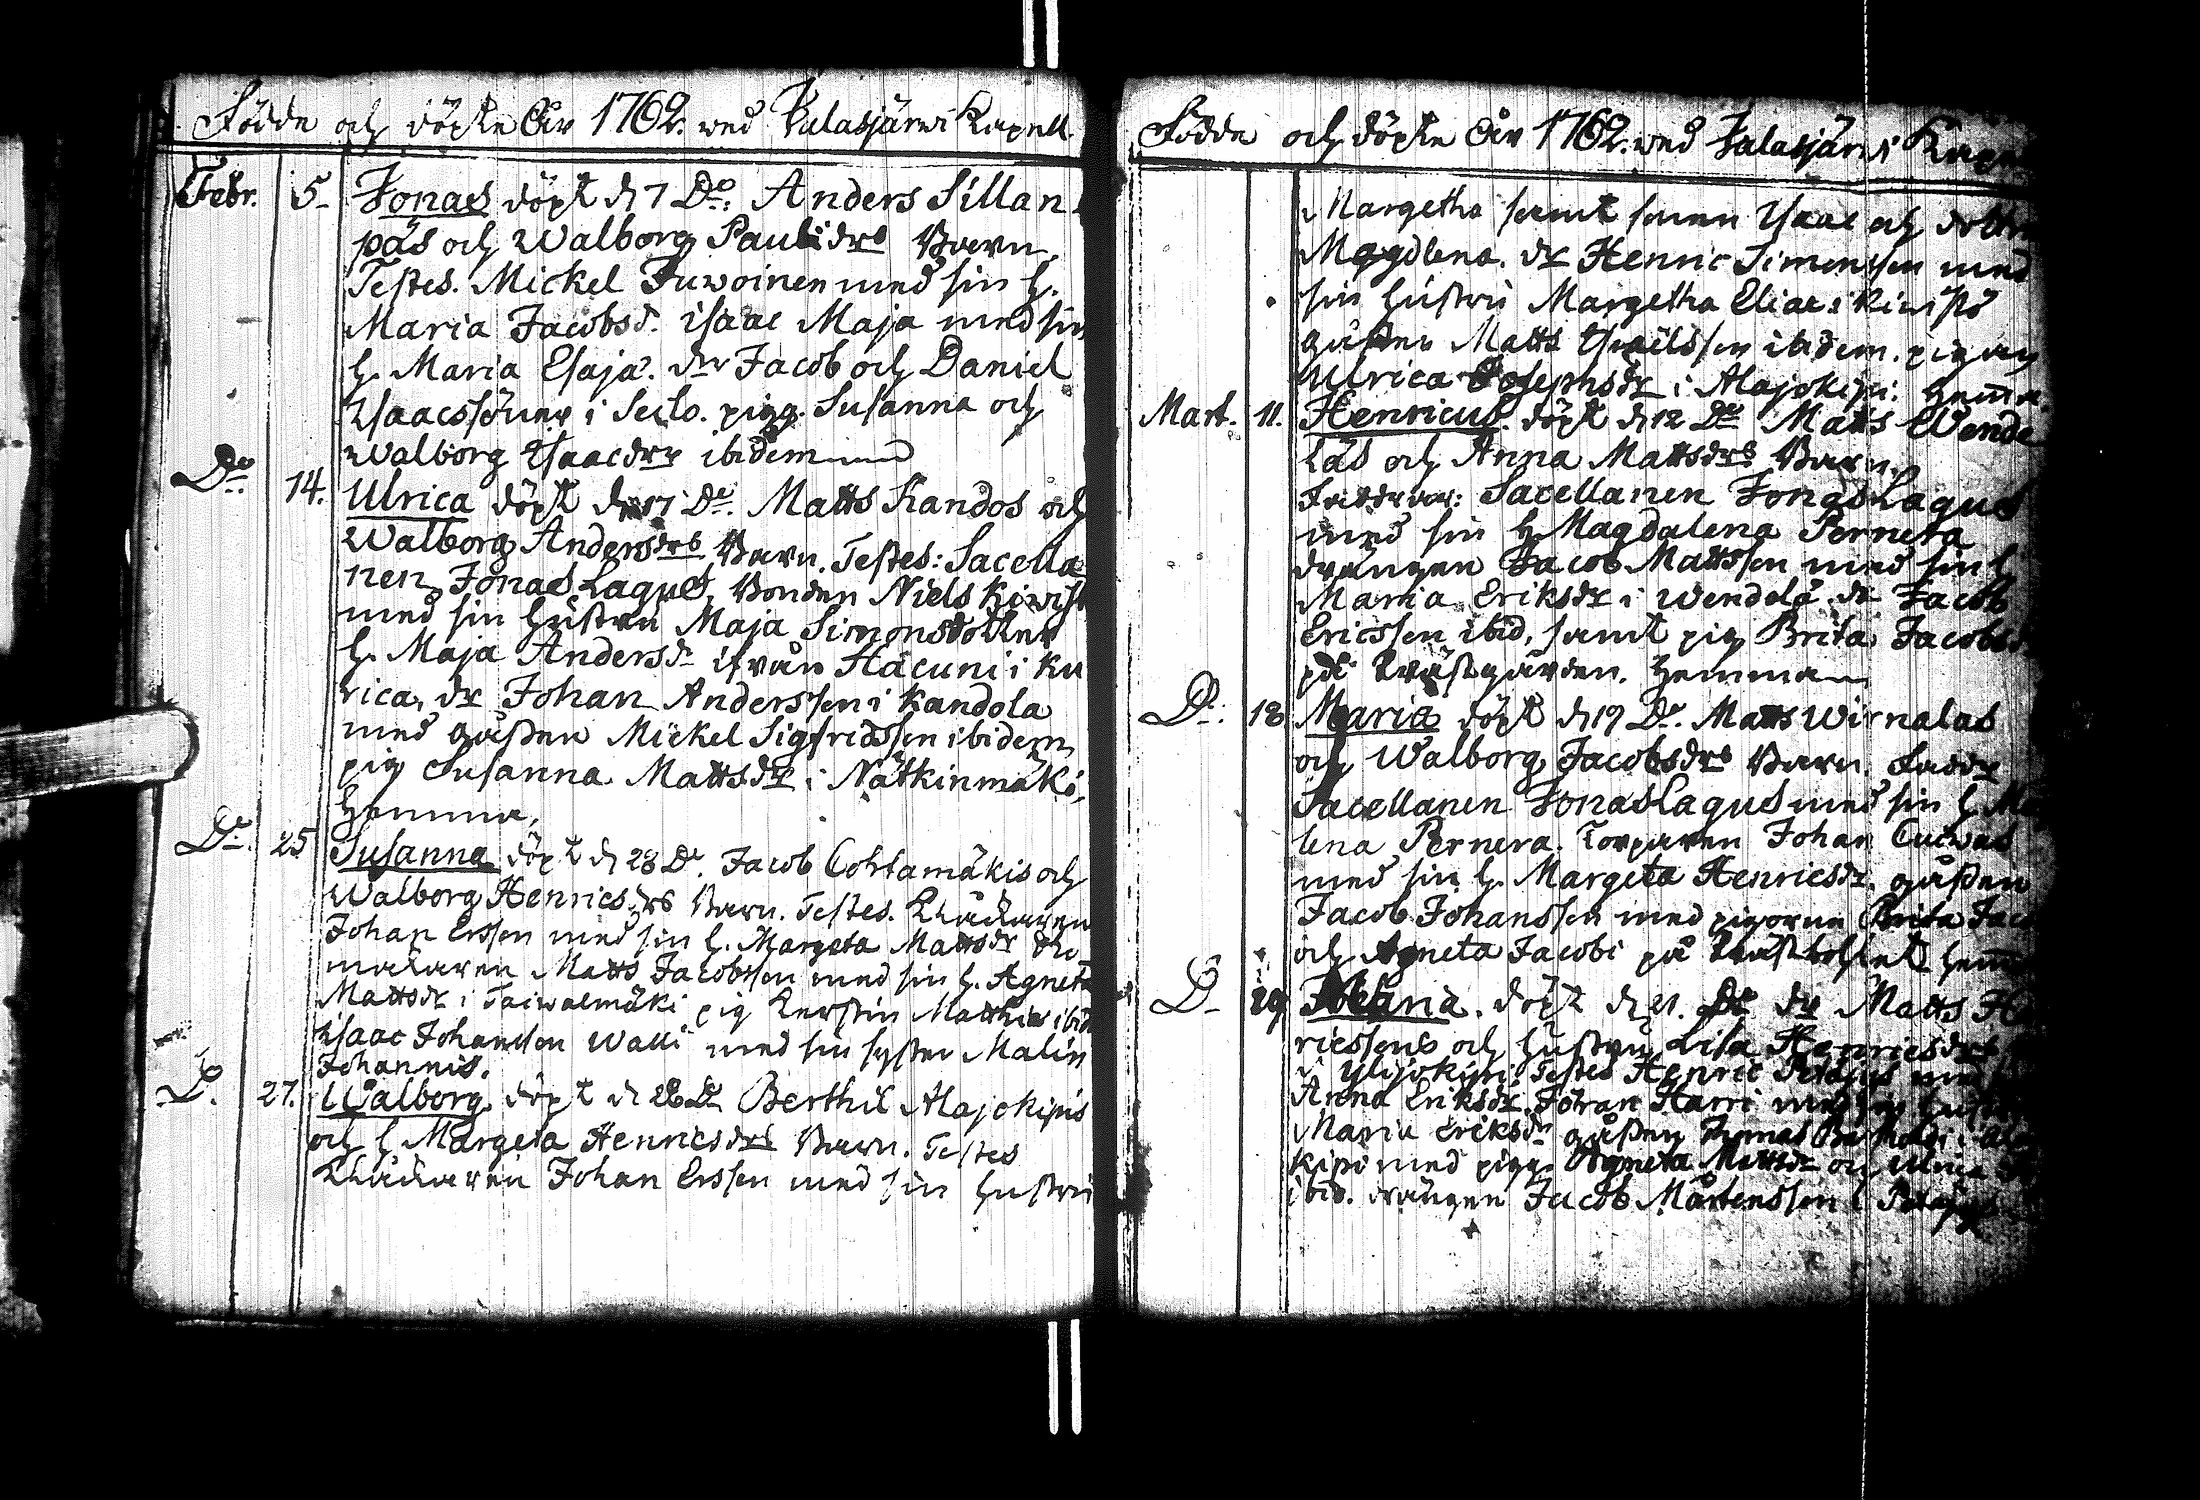 Födde och döpte Åhr 1762. wed Jalasjärwi Kapell.
Febr. 5. Jonas döpt d. 7 Do. Anders Sillan
päs och Walborg Paulidrs Barn.
Testes. Mickel Juwoinen med sin h.
Maria Jacobsd. Isaac Maja med sin
h. Maria Esaja. dr Jacob och Daniel
Isaacssöner i Seilo. pigg. Susanna och
Walborg Isaacdrr ibidem
Do. 14. Ulrica döpt d. 17 Do. Matts Kandos och
Walborg Andersdrs Barn. Testes: Sacella
nen Jonas Lagus, Bonden Niels Kiwist
med sin hustru Maja Simonsdotter
h. Maja Andersdr ifrån Hacuni i Ku
rica, dr Johan Anderssen i Kandola
med gåssen Mickel Sigfredssen ibidem
pig Susanna Mattsdr i Nätkinmäki,
Hemma.
Do. 25 Susanna döpt d. 28 Do. Jacob Cohtamäkis och
Walborg Henricsdrs Barn. Testes. Klåckaren
Johan Erssen med sin h. Margeta Mattsdr
Matts Jacobssen med sin h. Agneta
Mattsdr i Taiwalmäki pig Kerstin Matthiæ ibid
Isaac Johanssen Walli med sin syster Malin
Johannis.
D. 27. Walborg döpt d. 28 Do Berthil Alajokipis
och h. Margeta Henricsdrs Barn. Testes
Klåckaren Johan Erssen med sin hustru
Födde och döpte Åhr 1762. wed Jalasjärwi Kape
Margetha samt sonen Isaac och dottren
Magdlena. dr Henric Simonssen med
sin hustru Margetha Eliae i Kiwistö
gåssen Matts Israelssen ibidem. pigan
Ulrica Josephsdr i Alajokipi: Hemma.
Mart. 11. Henricus. döpt d. 12 Do Matts Wende
läs och Anna Mattsdrs Barn.
Faddrar: Sacellanen Jonas Lagus
med sin h Magdalena Pernera
drängen Jacob Mattssen med sin h
Maria Eriksdr i Wendelä dr Jacob
Ericssen ibid, samt pig Brita Jacobsd
på Prästgården. Hemma
Do. 18 Maria döpt d. 19 Do. Matts Wirnalas
och Walborg Jacobsdrs Barn. Faddr
Sacellanen Jonas Lagus med sin h. Ma
lena Pernera. Torparen Johan
med sin h. Margeta Henricsdr. gåssen
Jacob Johanssen med pigorna Brita Jaco
och Agneta Jacobi på Prästbolet hem
D. 19 döpt d. 21. Do dr Matts He
ricssens och hustru Lisa Henricsdrs
i Ylijokipi Testes Henric
Anna Eriksdr. Johan Harri med sin hustru
Maria Ericksdr gåssen Thomas Bertholdi i Ala
kipi med pigg. Agneta Mattsdr och Ulrica
ibid. drängen Jacob Mårtenssen i